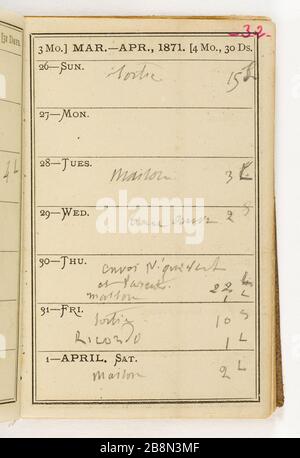 [31 Days.
32
3 Mo.] MAR.—APR., 1871. [4 Mo., 30 Ds.
26—SUN.
sortie 15 L
27—MON.
28—TUES.
4 L
Maison 3 L
29—WED.
2 S
30—THU.
envoi
et
maison 22 L
31—FRI.
sortie 10 S
RICORDO 1 L
1—APRIL. SAT.
maison 2 L
alamy
Image ID: 2B8N3MF
www.alamy.com